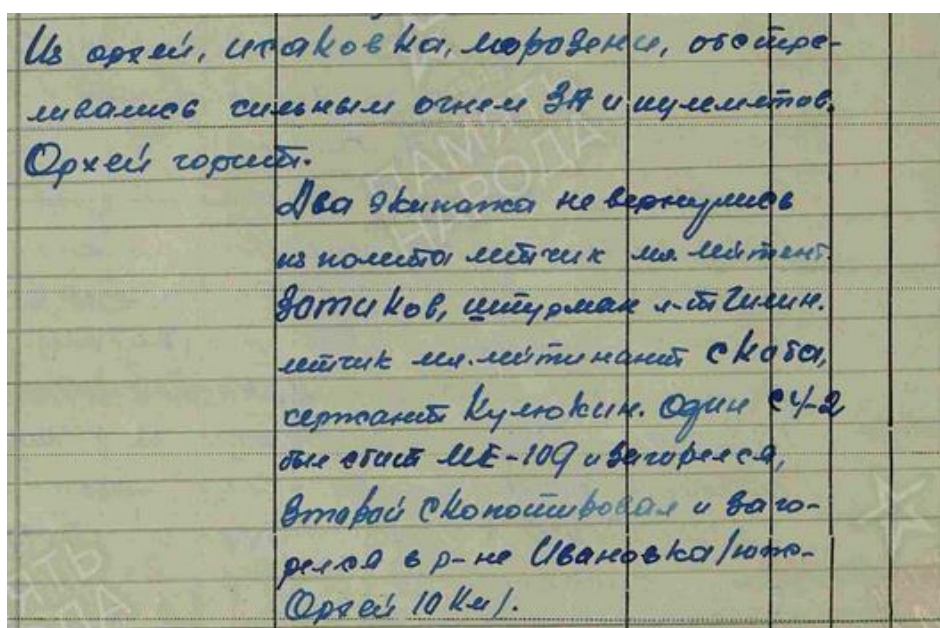 Из орхей, исаковка, морозени, обстре-
ливались сильным огнем ЗА и пулеметов.
Орхей горит.
Два экипажа не вернулись
из полета летчик мл. лейтент.
Затиков, штурман л-т Чилин.
летчик мл. лейтинант Скаба,
сержант Кулюкин. Один СУ-2
был сбит МЕ-109 и загорелся,
второй скопотировал и заго-
релся в р-не Ивановка/юго-
Орхей 10 Км/.
ПАМЯТЬ
НАРОДА